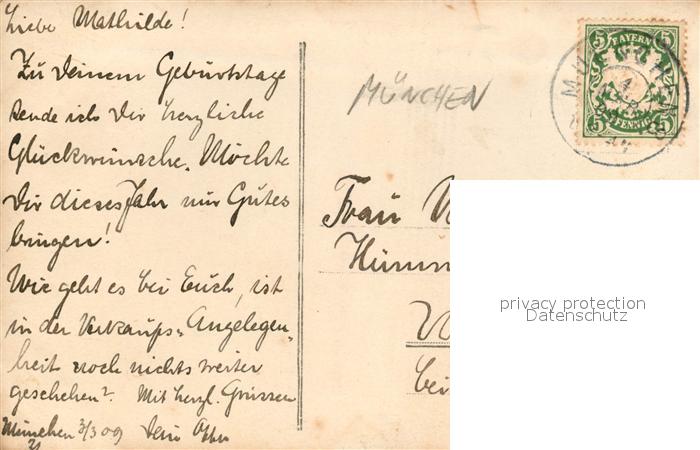 Liebe Mathilde!
Zu Deinem Geburtstage
sende ich Dir herzliche
Glückwünsche. Möchte
Dir dieses Jahr nur Gutes
bringen!
Wie geht es bei Euch, ist
in der Verkaufs= Angelegen„
heit noch nichts weiter
geschehen? Mit herzl. Grüssen
München 3/3 09 Dein
MÜNCHEN
BAYERN
5 5
PFENNIG
5 5
MUENCHEN
Frau
Himm
bei
privacy protection
Datenschutz